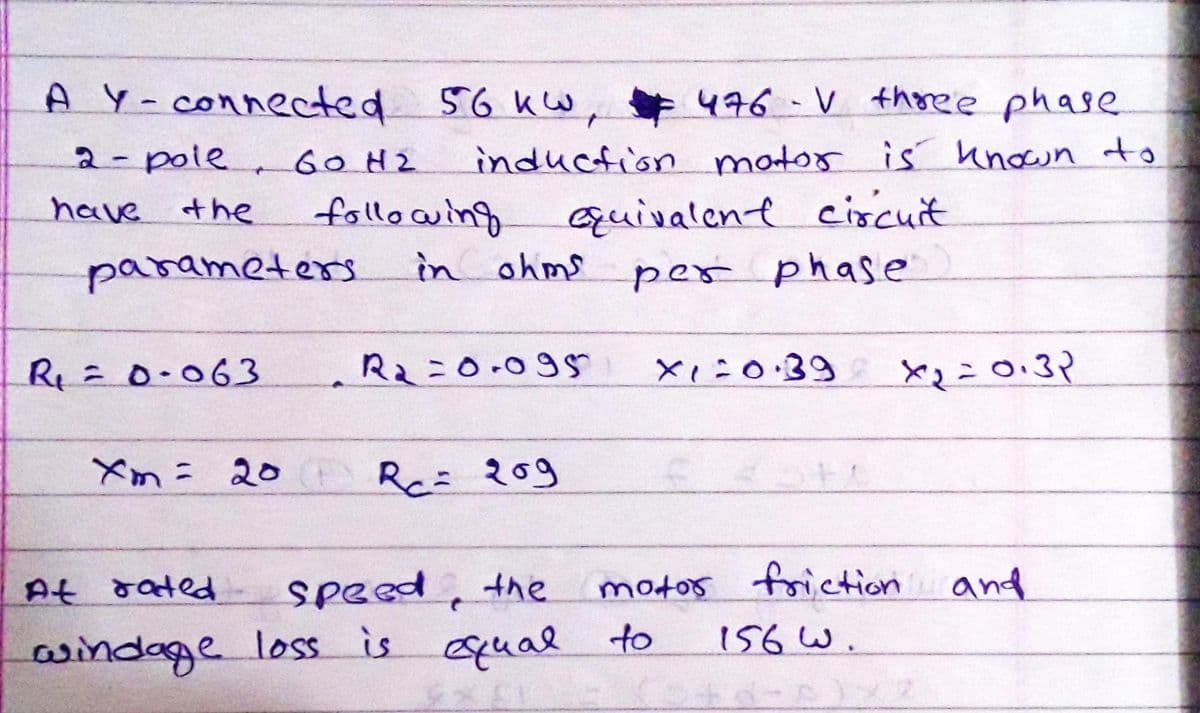 A Y-connected 56 kW, 476-V three phase
2-pole, 60 HZ induction motor is known to
have the following equivalent circuit
parameters in ohms per phase
R₁ = 0.063, R₂ = 0.095 X₁ = 0.39 X₂ = 0.32
Xm = 20 Rc = 209
At rated speed, the motor friction and
windage loss is equal to 156 W.